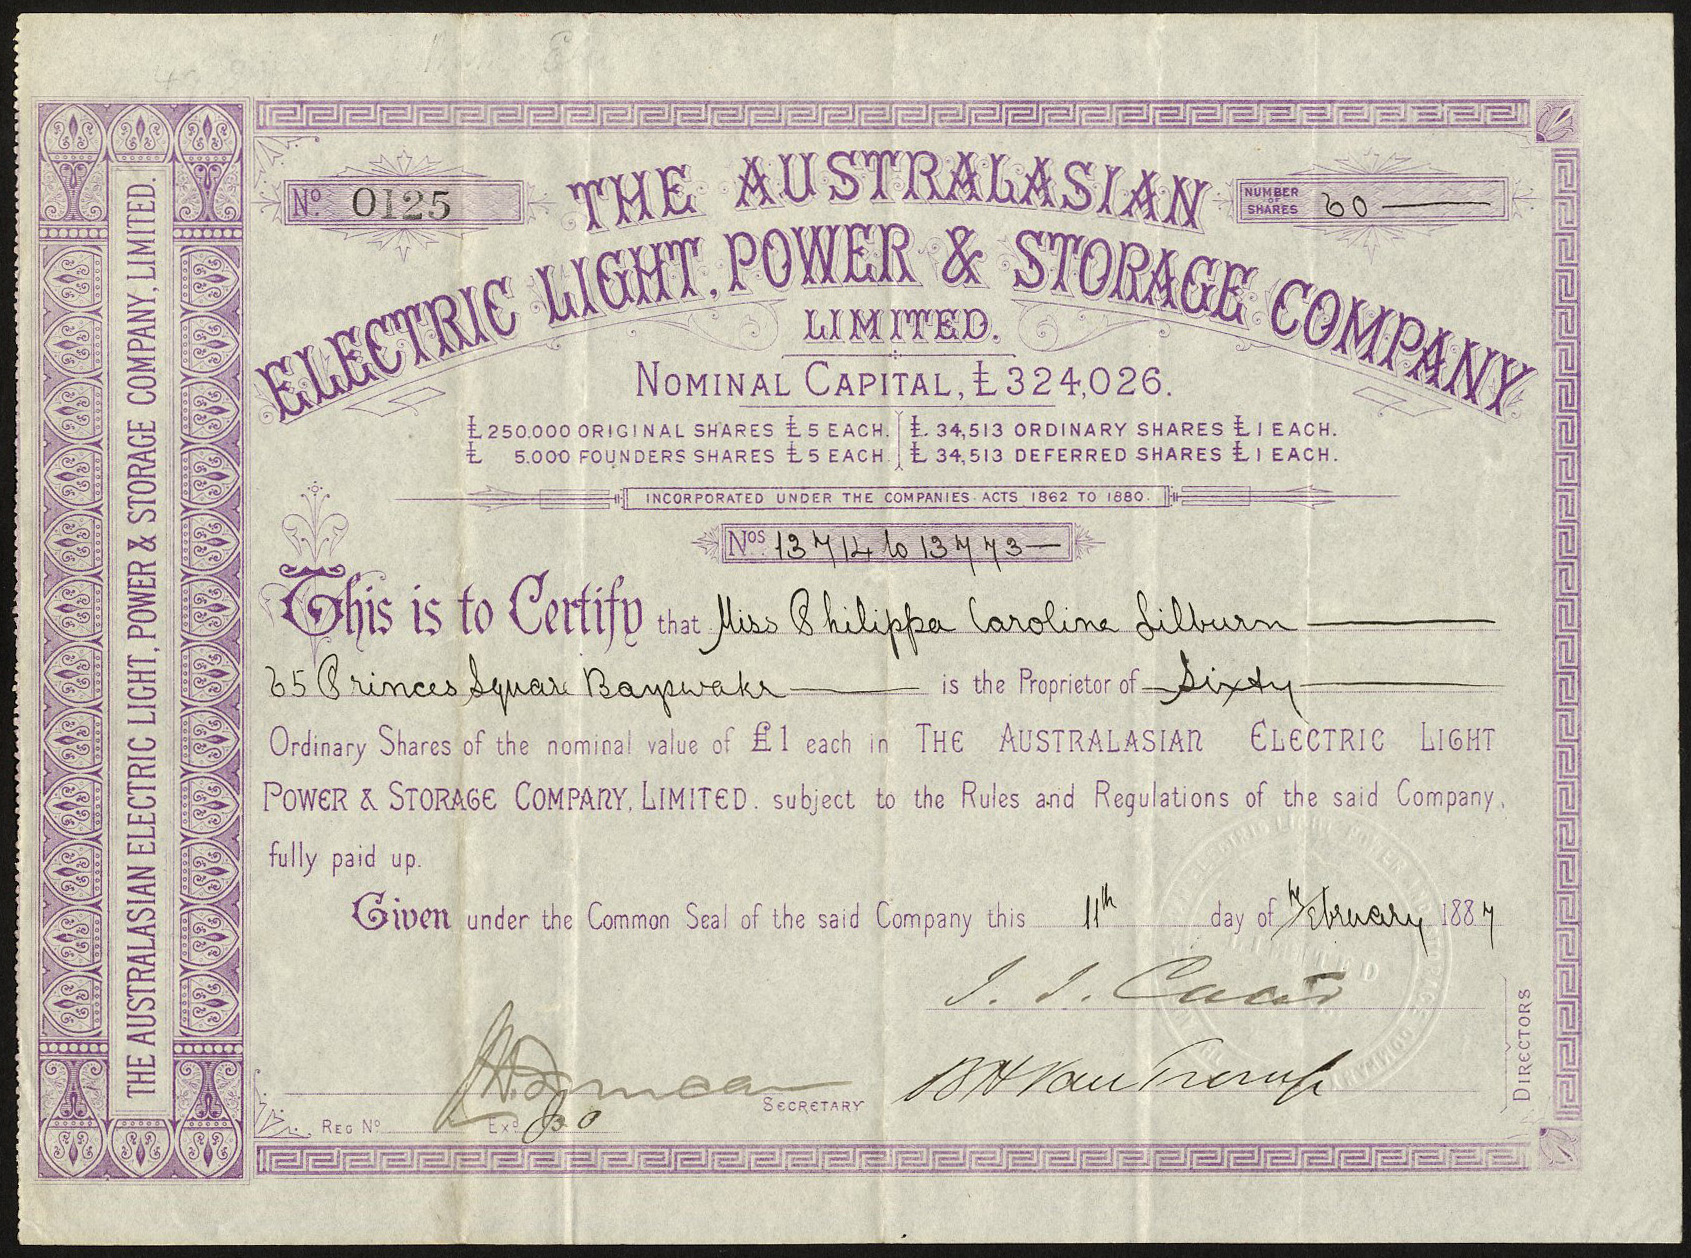 THE AUSTRALASIAN ELECTRIC LIGHT, POWER & STORAGE COMPANY, LIMITED.
No. 0125
NUMBER OF SHARES 60
THE AUSTRALASIAN
ELECTRIC LIGHT, POWER & STORAGE COMPANY
LIMITED.
NOMINAL CAPITAL, £324,026.
£250.000 ORIGINAL SHARES £5 EACH. £. 34,513 ORDINARY SHARES £1 EACH.
£ 5.000 FOUNDERS SHARES £5 EACH. £ 34,513 DEFERRED SHARES £1 EACH.
INCORPORATED UNDER THE COMPANIES ACTS 1862 TO 1880.
Nos 13714 to 13773
This is to Certify that Miss Philippa Caroline Silburn
65 Princes Square Bayswater is the Proprietor of Sixty
Ordinary Shares of the nominal value of £1 each in THE AUSTRALASIAN ELECTRIC LIGHT
POWER & STORAGE COMPANY, LIMITED. subject to the Rules and Regulations of the said Company,
fully paid up.
Given under the Common Seal of the said Company this 11th day of February 1887
B H Van Tromp
DIRECTORS
SECRETARY
REG No. Exd